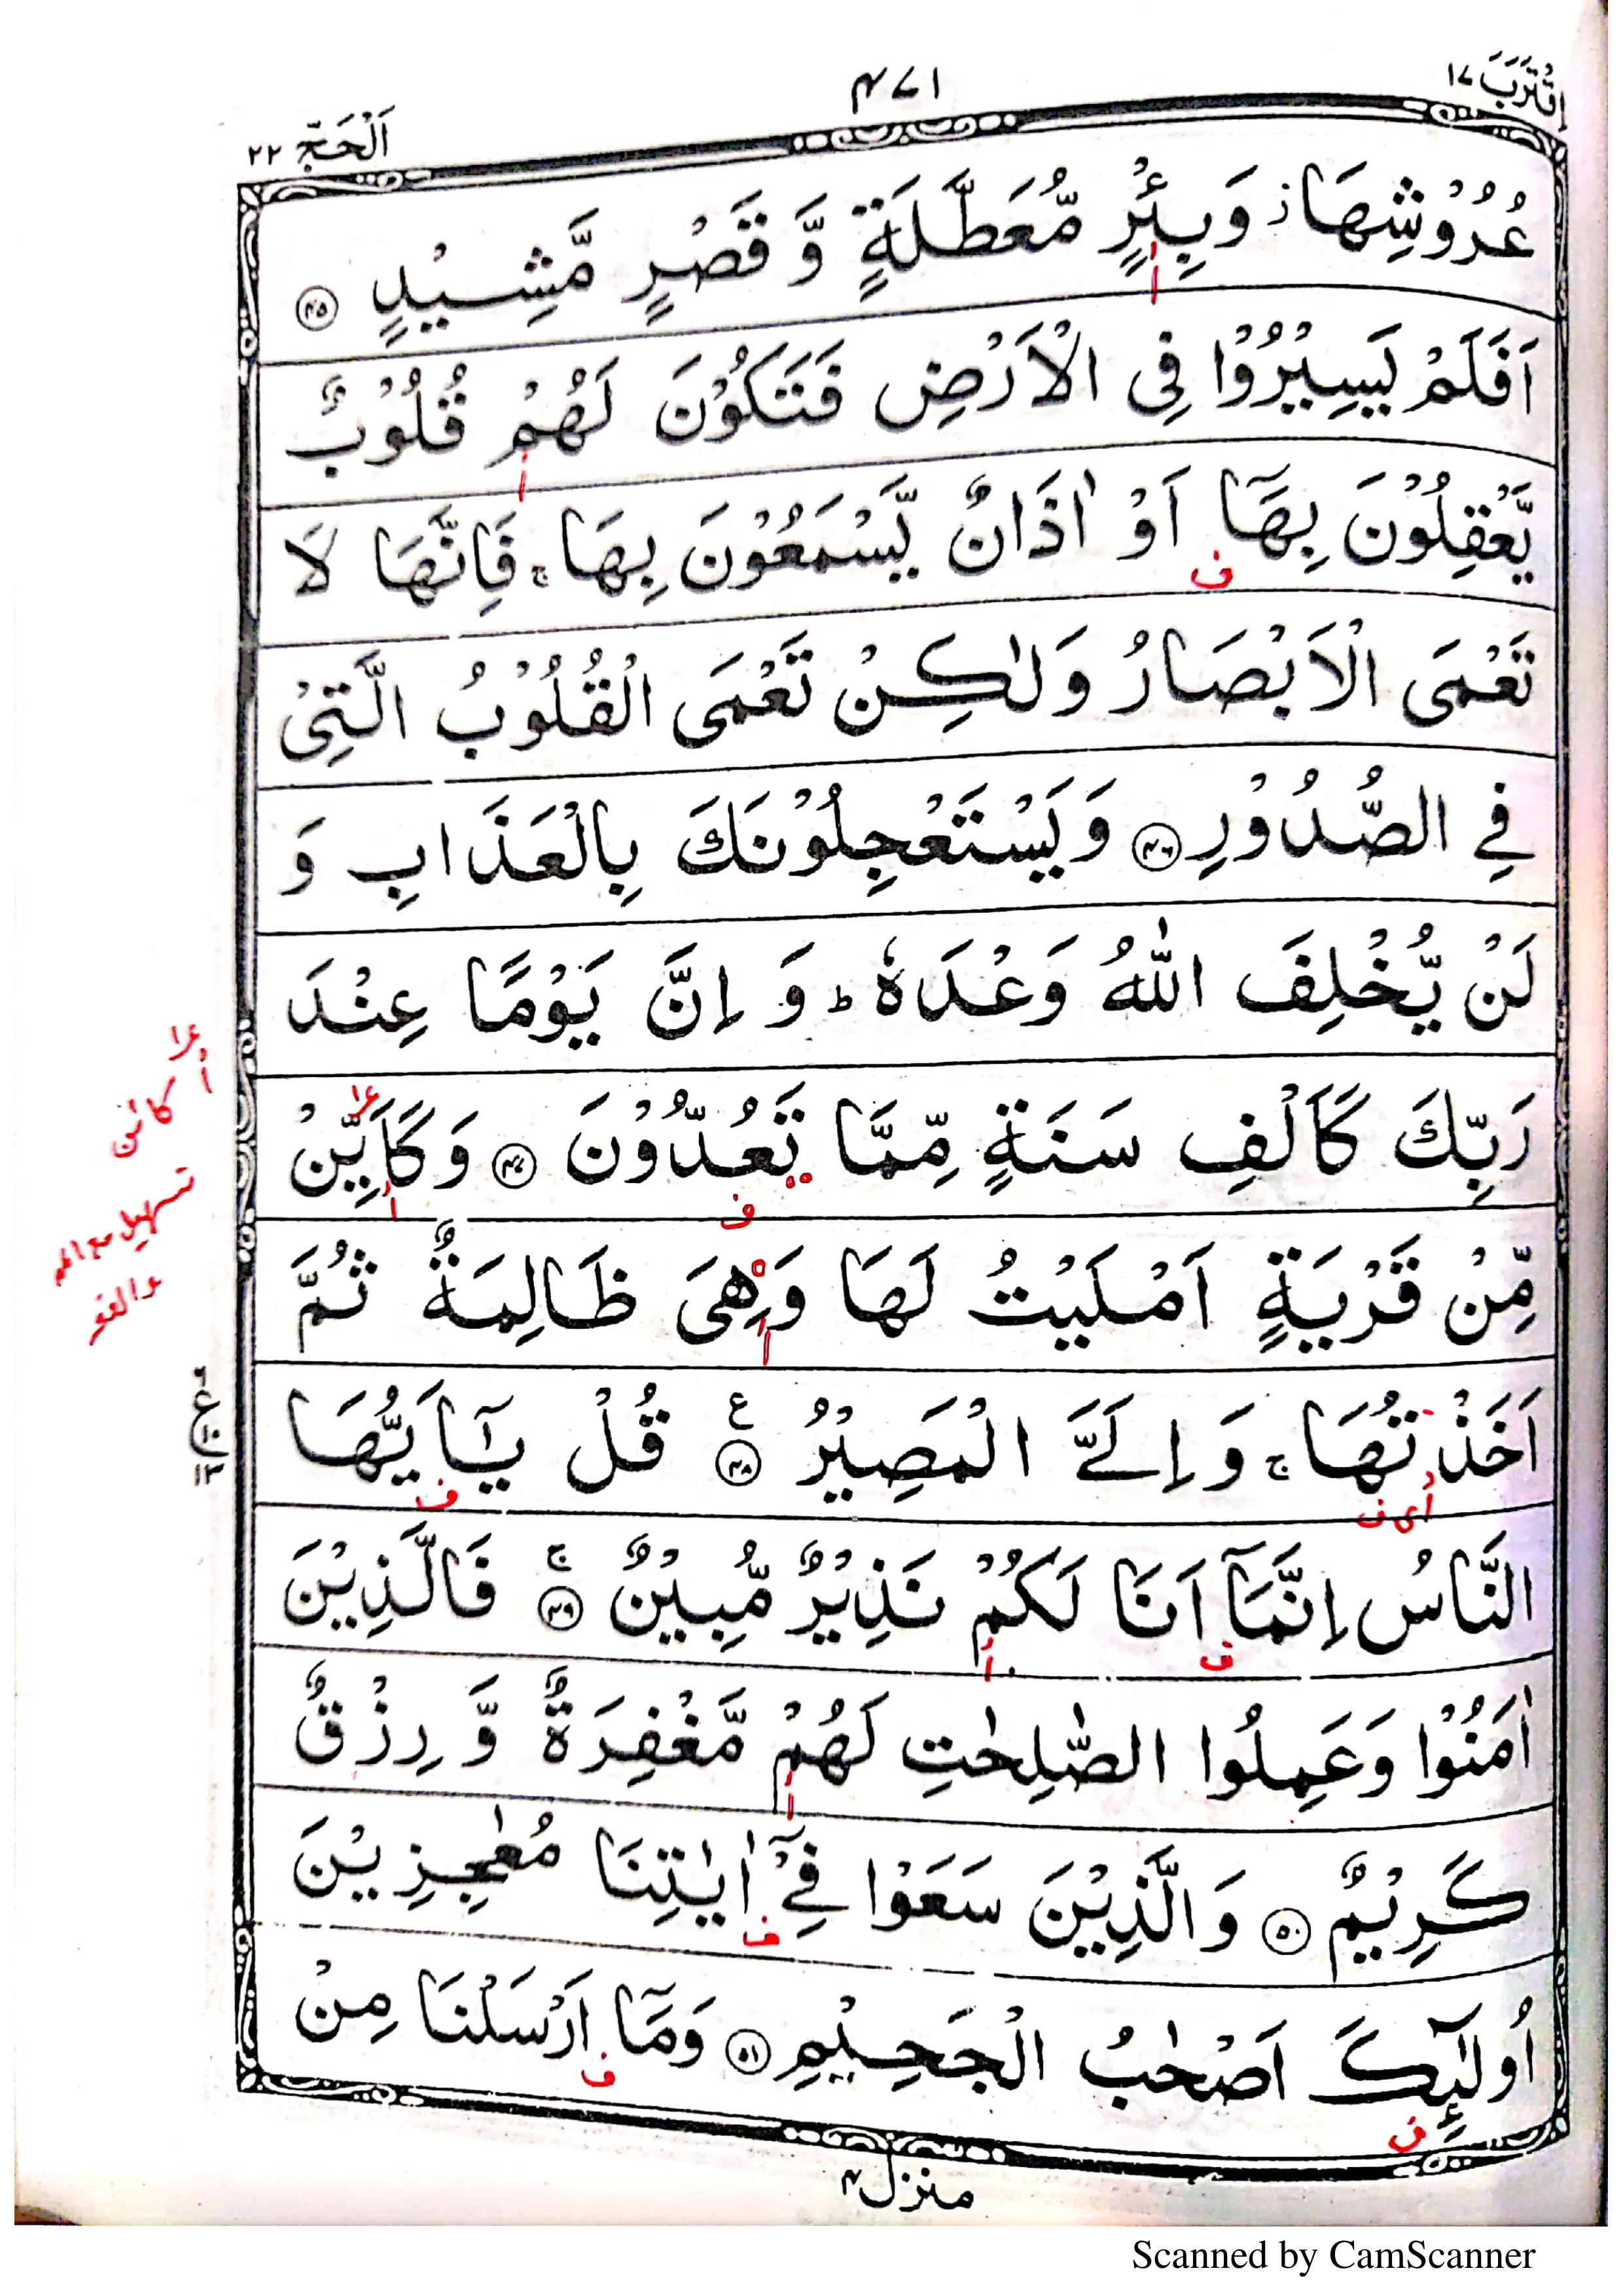 اِقْتَرَبَ ١٧
٤٧١
اَلْحَجّ ٢٢
عُرُوْشِهَا ز وَبِئْرٍ مُّعَطَّلَةٍ وَّ قَصْرٍ مَّشِيْدٍ ﴿٤٥﴾
اَفَلَمْ يَسِيْرُوْا فِى الْاَرْضِ فَتَكُوْنَ لَهُمْ قُلُوْبٌ
يَّعْقِلُوْنَ بِهَآ اَوْ اٰذَانٌ يَّسْمَعُوْنَ بِهَا ج فَاِنَّهَا لَا
تَعْمَى الْاَبْصَارُ وَلٰكِنْ تَعْمَى الْقُلُوْبُ الَّتِىْ
فِى الصُّدُوْرِ ﴿٤٦﴾ وَيَسْتَعْجِلُوْنَكَ بِالْعَذَابِ وَ
لَنْ يُّخْلِفَ اللّٰهُ وَعْدَهٗ ط وَ اِنَّ يَوْمًا عِنْدَ
رَبِّكَ كَاَلْفِ سَنَةٍ مِّمَّا تَعُدُّوْنَ ﴿٤٧﴾ وَكَاَيِّنْ
مِّنْ قَرْيَةٍ اَمْلَيْتُ لَهَا وَهِىَ ظَالِمَةٌ ثُمَّ
اَخَذْتُهَا ج وَ اِلَىَّ الْمَصِيْرُ ﴿٤٨﴾ ع قُلْ يٰٓاَيُّهَا
النَّاسُ اِنَّمَآ اَنَا لَكُمْ نَذِيْرٌ مُّبِيْنٌ ﴿٤٩﴾ ج فَالَّذِيْنَ
اٰمَنُوْا وَعَمِلُوا الصّٰلِحٰتِ لَهُمْ مَّغْفِرَةٌ وَّ رِزْقٌ
كَرِيْمٌ ﴿٥٠﴾ وَالَّذِيْنَ سَعَوْا فِىْٓ اٰيٰتِنَا مُعٰجِزِيْنَ
اُولٰٓئِكَ اَصْحٰبُ الْجَحِيْمِ ﴿٥١﴾ وَمَآ اَرْسَلْنَا مِنْ
كائن
تسهيل مع المد
والقصر
منزل ٤
Scanned by CamScanner